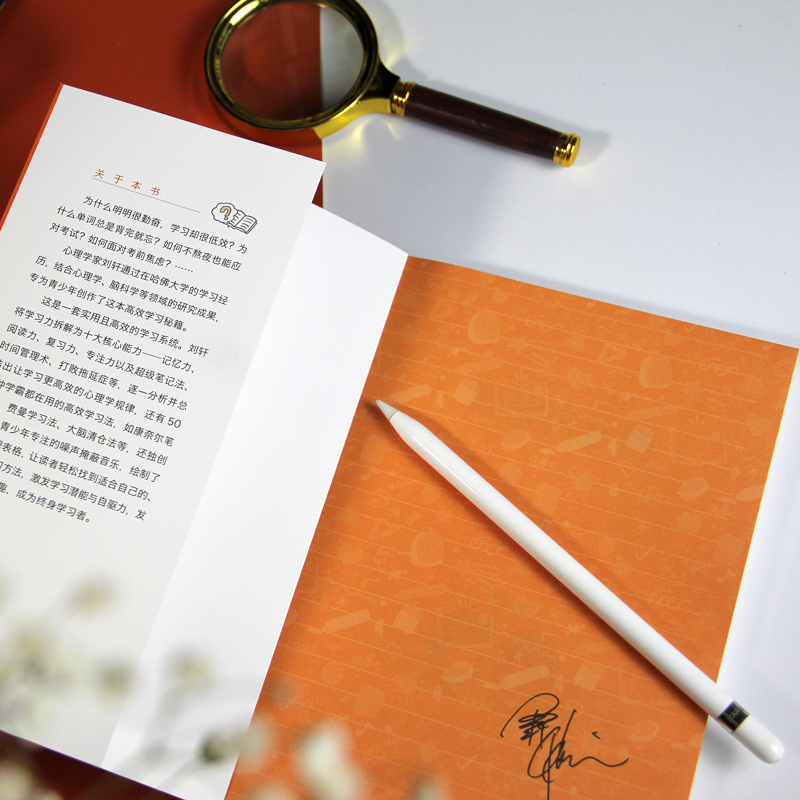 关于本书
为什么明明很勤奋，学习却很低效？为
什么单词总是背完就忘？如何不熬夜也能应
对考试？如何面对考前焦虑？……
心理学家刘轩通过在哈佛大学的学习经
历，结合心理学、脑科学等领域的研究成果，
专为青少年创作了这本高效学习秘籍。
这是一套实用且高效的学习系统。刘轩
将学习力拆解为十大核心能力——记忆力、
阅读力、复习力、专注力以及超级笔记法、
时间管理术、打败拖延症等，逐一分析并总
出让学习更高效的心理学规律，还有 50
种学霸都在用的高效学习法，如康奈尔笔
费曼学习法、大脑清仓法等，还独创
青少年专注的噪声掩蔽音乐，绘制了
表格，让读者轻松找到适合自己的、
习方法，激发学习潜能与自驱力，发
趣，成为终身学习者。